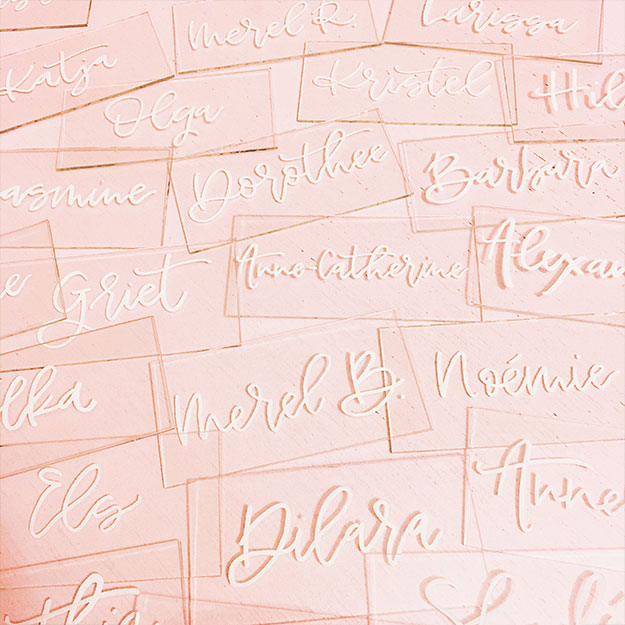 Merel R.
Larissa
Katja
Kristel
Hil
Olga
asmine
Dorothee
Barbara
Anne-Catherine
Alexan
e
Griet
lka
Merel B.
Noémie
Els
Dilara
Anne